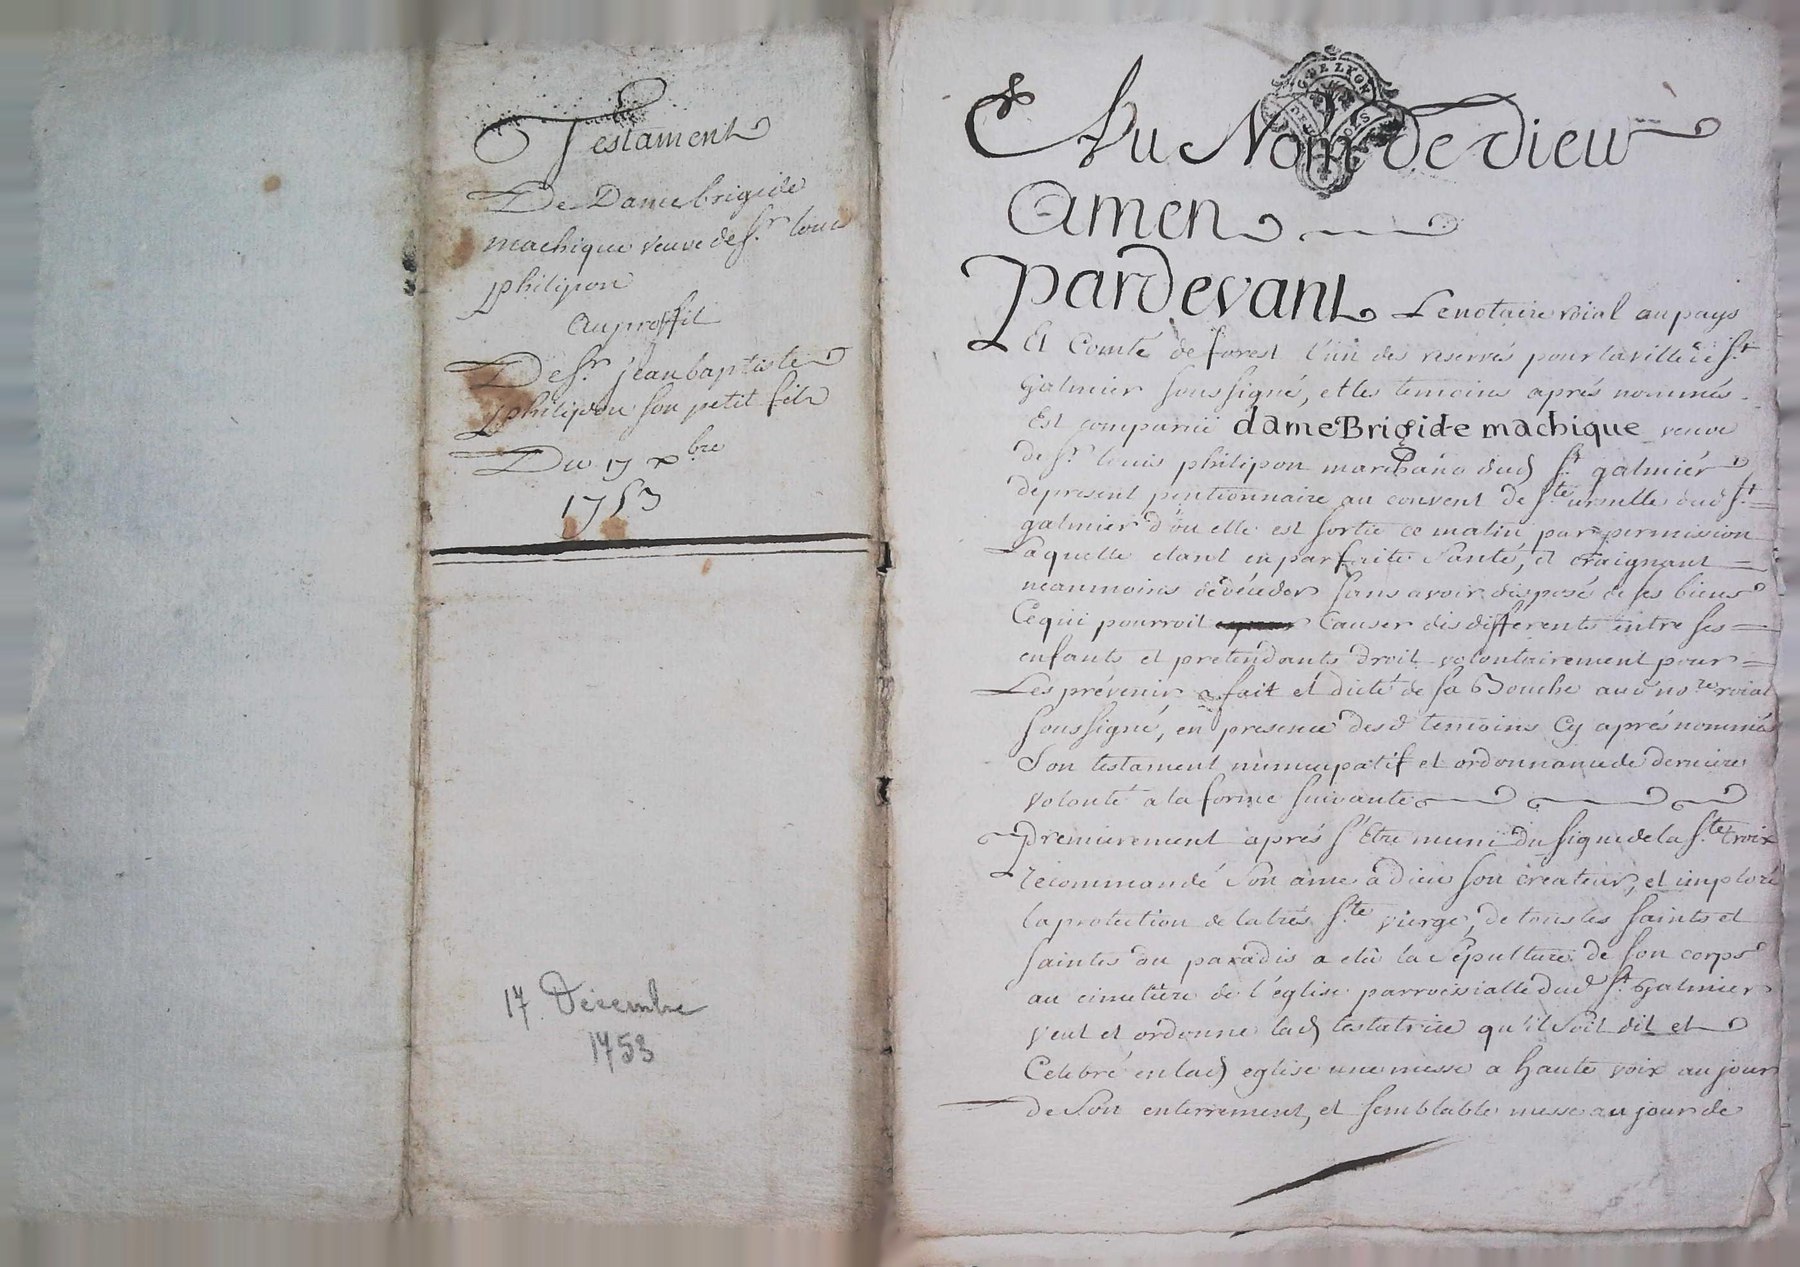 Testament
De Dame brigide
machique veuve de Sr. louis
philipon
Au proffit
De Sr. jean baptiste
philipon son petit fils
Du 17 Xbre
1753
17 Décembre
1753
GDE LYON
Au Nom de Dieu
Amen
Pardevant Le notaire roial au pays
Et Comté de forest l'un des reservés pour la ville de St.
Galmier soussigné, et les temoins aprés nommés
Est comparüe dame Brigide machique veuve
de Sr. louis philipon marchand dud St. galmiér
de present pentionnaire au couvent de Ste. ursulle dud St.
galmier d'ou elle est sortie ce matin par permission
Laquelle etant en parfaite Santé, et craignant
neanmoins de décéder sans avoir disposé de ses biens
Ce qui pourroit Causer des differents entre ses
enfants et pretendants droit volontairement pour
Les prévenir a fait et dicté de sa Bouche aud nore. roial
soussigné, en presence desd temoins Cy aprés nommés
Son testament nuncupatif et ordonnance de derniere
volonté a la forme suivante
premierement aprés s'Etre muni du signe de la Ste. Croix
recommandé Son ame a dieu son créateur, et imploré
la protection de la trés Ste. vierge, de tous les saints et
saintes du paradis a elû la Sépulture de son corps
au cimetiére de l'église parroissialle dud St. Galmier
veut et ordonne lad testatrice qu'il Soit dit et
Celebré en lad eglise une messe a haute voix au jour
de Son enterrement, et semblable messe au jour de